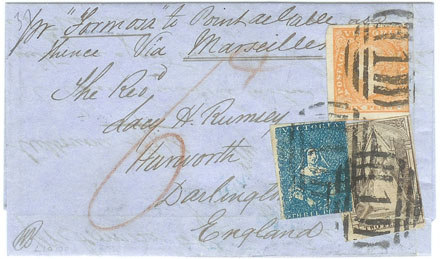 p/r "Formosa" to Point de Galle and
thence Via Marseilles
The Revd
Lacy H. Rumsey
Hanworth
Darlington
England
6
VICTORIA
1
1